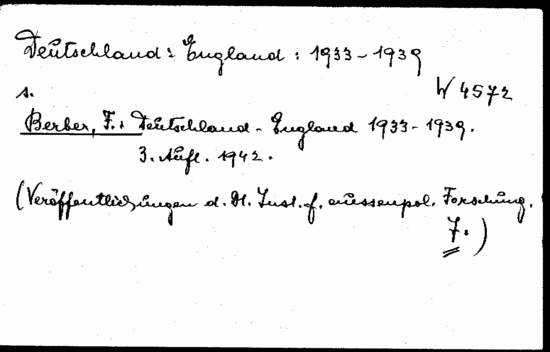 Deutschland: England: 1933-1939
W 4572
s.
Berber, F.: Deutschland - England 1933-1939.
3. Aufl. 1942.
(Veröffentlichungen d. Dt. Inst. f. aussenpol. Forschung.
7.)